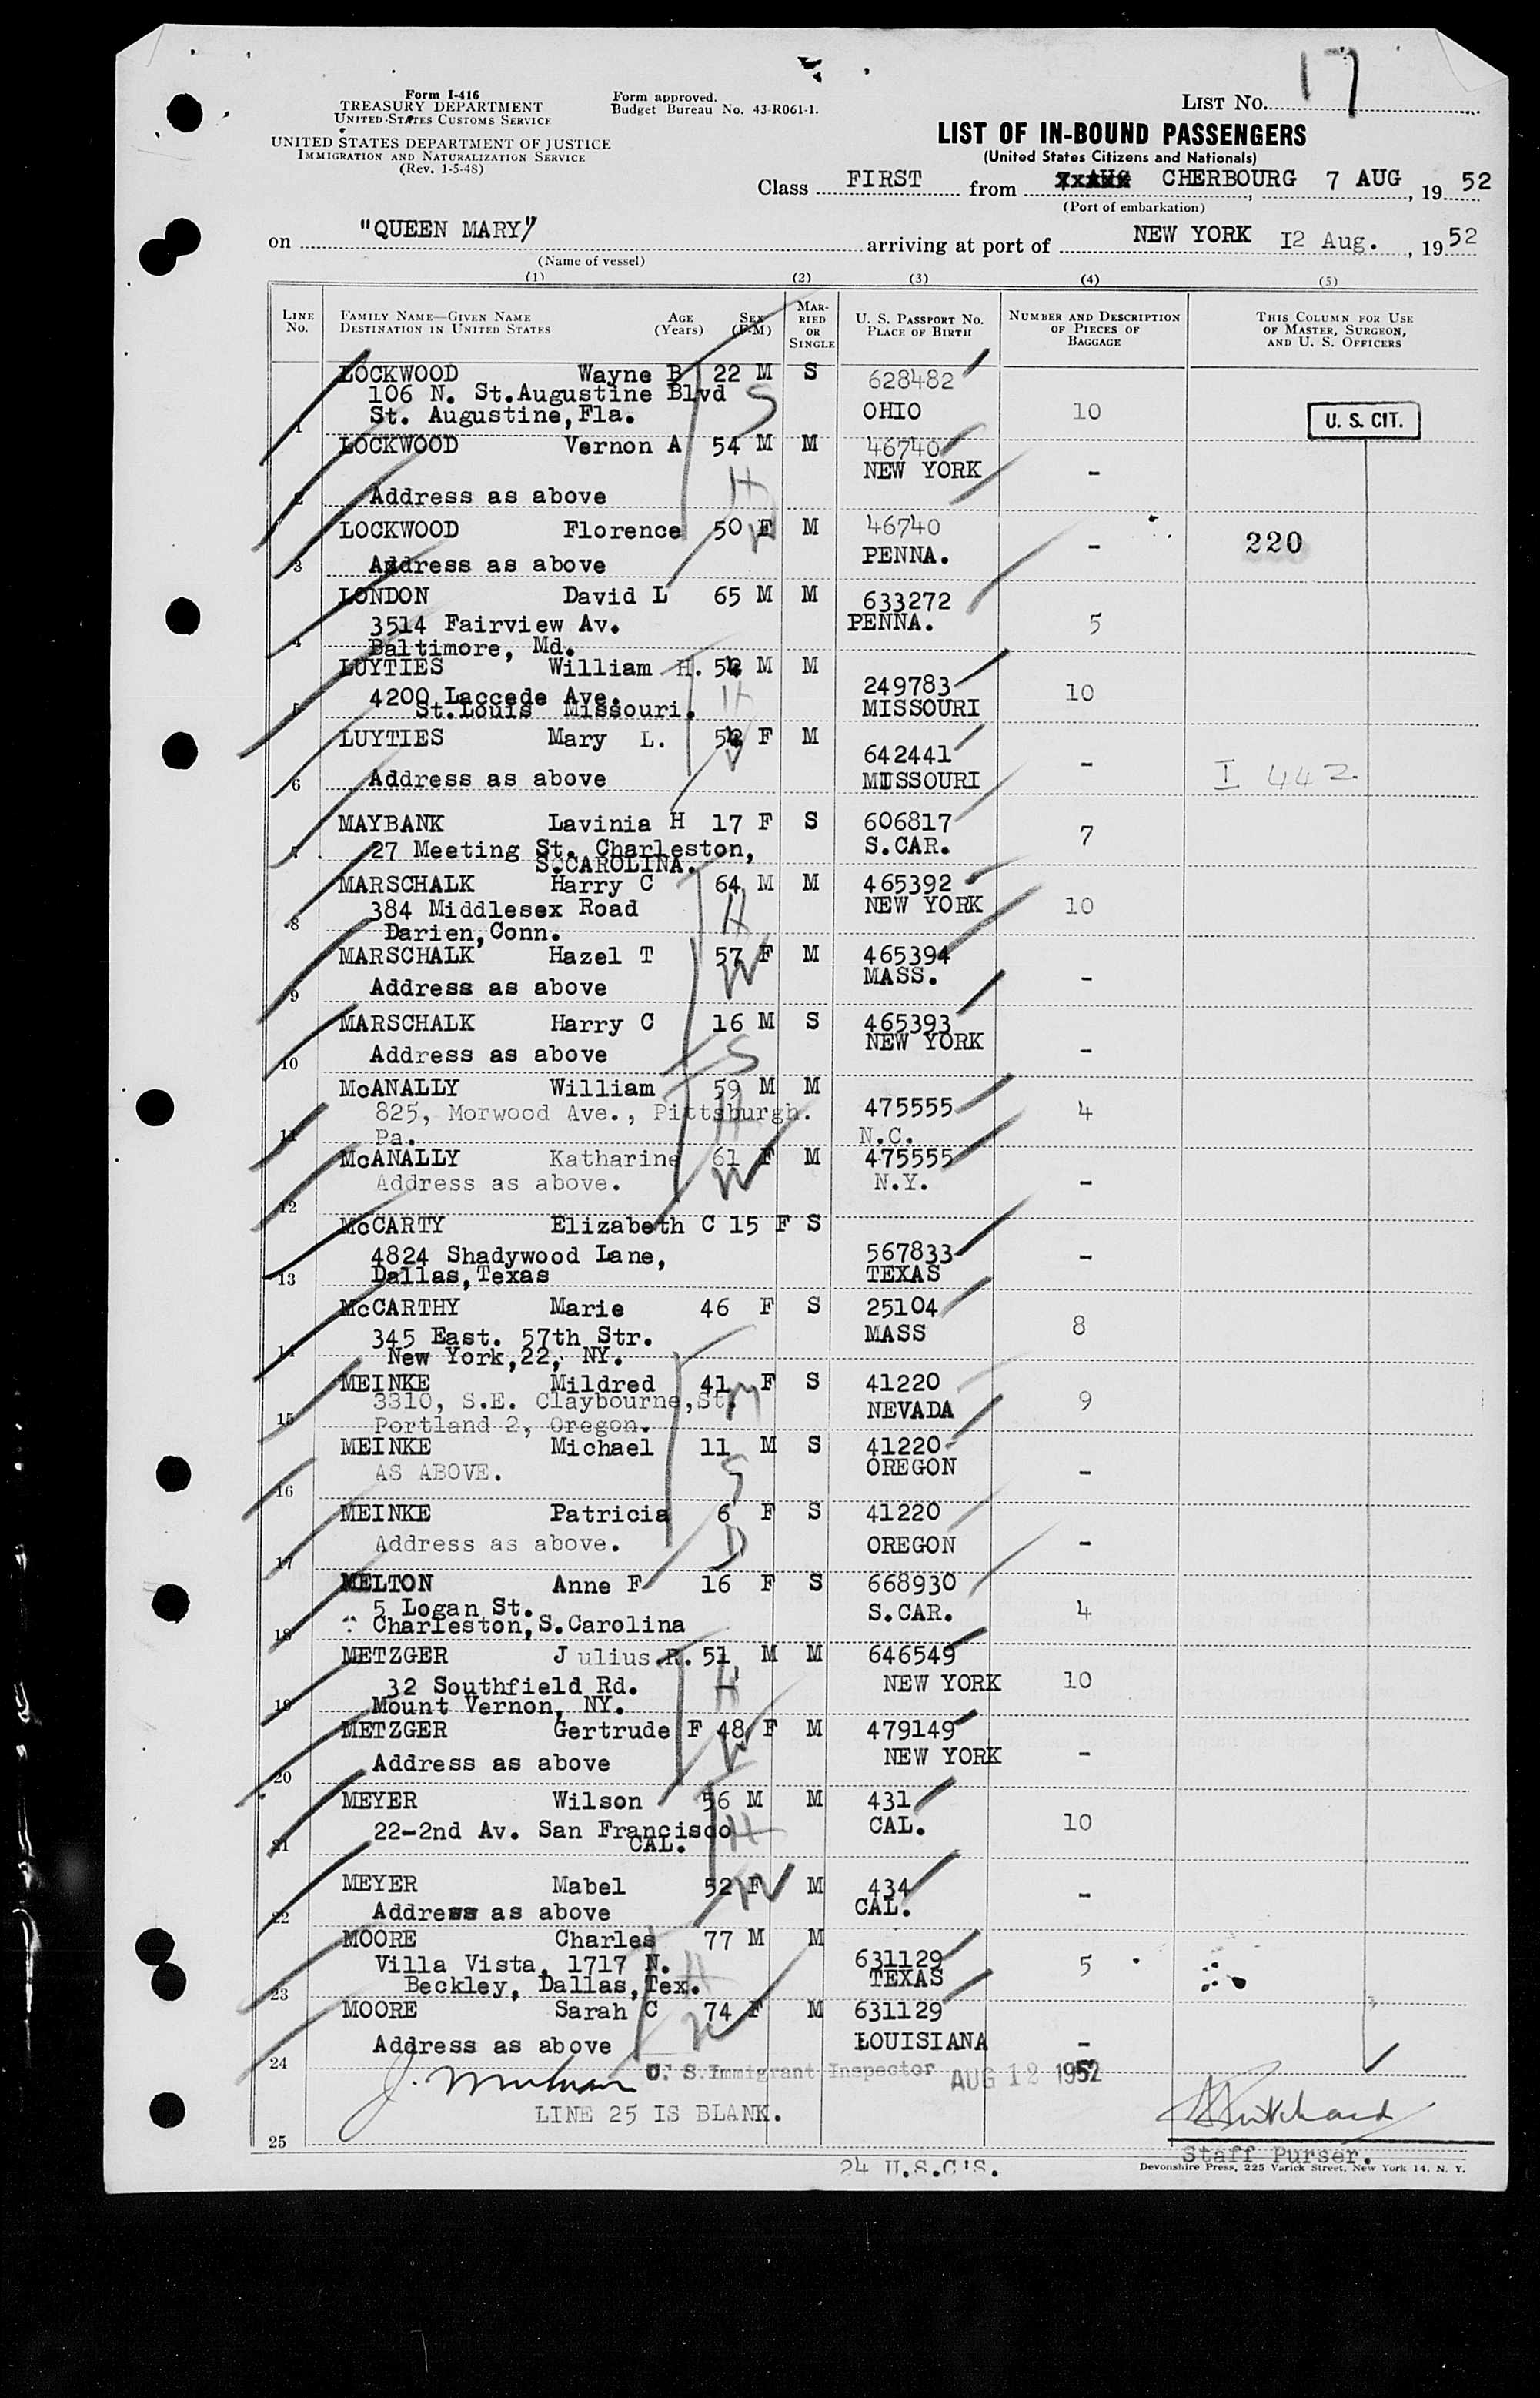 17
Form I-416
TREASURY DEPARTMENT
UNITED STATES CUSTOMS SERVICE
UNITED STATES DEPARTMENT OF JUSTICE
IMMIGRATION AND NATURALIZATION SERVICE
(Rev. 1-5-48)
Form approved.
Budget Bureau No. 43-R061-1.
LIST NO.
LIST OF IN-BOUND PASSENGERS
(United States Citizens and Nationals)
Class FIRST from CHERBOURG 7 AUG, 1952
(Port of embarkation)
on "QUEEN MARY" arriving at port of NEW YORK 12 Aug., 1952
(Name of vessel)
(1) (2) (3) (4) (5)
LINE NO. FAMILY NAME—GIVEN NAME DESTINATION IN UNITED STATES AGE (Years) SEX (F-M) MARRIED OR SINGLE U. S. PASSPORT NO. PLACE OF BIRTH NUMBER AND DESCRIPTION OF PIECES OF BAGGAGE THIS COLUMN FOR USE OF MASTER, SURGEON, AND U. S. OFFICERS
LOCKWOOD Wayne B 22 M S 628482
106 N. St.Augustine Blvd
1 St. Augustine,Fla. S OHIO 10 U. S. CIT.
LOCKWOOD Vernon A 54 M M 46740
NEW YORK -
2 Address as above H
LOCKWOOD Florence 50 F M 46740
W 220
3 Address as above PENNA. -
LONDON David L 65 M M 633272
3514 Fairview Av. PENNA. 5
4 Baltimore, Md.
LUYTIES William H. M M
4200 Laccede Ave. H 249783 10
5 St.Louis Missouri. MISSOURI
LUYTIES Mary L. F M
W 642441
6 Address as above MISSOURI - I 442
MAYBANK Lavinia H 17 F S 606817
7 27 Meeting St. Charleston, S.CAR. 7
S.CAROLINA.
MARSCHALK Harry C 64 M M 465392
384 Middlesex Road H NEW YORK 10
8 Darien,Conn.
MARSCHALK Hazel T 57 F M 465394
9 Address as above W MASS. -
MARSCHALK Harry C 16 M S 465393
NEW YORK
10 Address as above S -
McANALLY William 59 M M
825, Morwood Ave., Pittsburgh. H 475555 4
11 Pa. N.C.
McANALLY Katharine 61 F M 475555
12 Address as above. W N.Y. -
McCARTY Elizabeth C 15 F S
4824 Shadywood Lane, 567833 -
13 Dallas,Texas TEXAS
McCARTHY Marie 46 F S 25104
345 East. 57th Str. MASS 8
14 New York,22, NY.
MEINKE Mildred 41 F S 41220
3310, S.E. Claybourne,St. M NEVADA 9
15 Portland 2, Oregon.
MEINKE Michael 11 M S 41220
16 AS ABOVE. S OREGON -
MEINKE Patricia 6 F S 41220
17 Address as above. D OREGON -
MELTON Anne F 16 F S 668930
5 Logan St. S.CAR. 4
18 Charleston,S.Carolina
METZGER Julius R. 51 M M 646549
32 Southfield Rd. H NEW YORK 10
19 Mount Vernon, NY.
METZGER Gertrude F 48 F M 479149
20 Address as above W NEW YORK -
MEYER Wilson 56 M M 431
22-2nd Av. San Francisco H CAL. 10
21 CAL.
MEYER Mabel 52 F W M 434
22 Address as above CAL. -
MOORE Charles 77 M M
Villa Vista, 1717 N. H 631129 5
23 Beckley, Dallas,Tex. TEXAS
MOORE Sarah C 74 F M 631129
24 Address as above W LOUISIANA -
U. S. Immigrant Inspector AUG 12 1952
LINE 25 IS BLANK.
25
Staff Purser.
24 U.S.C'S.
Devonshire Press, 225 Varick Street, New York 14, N. Y.